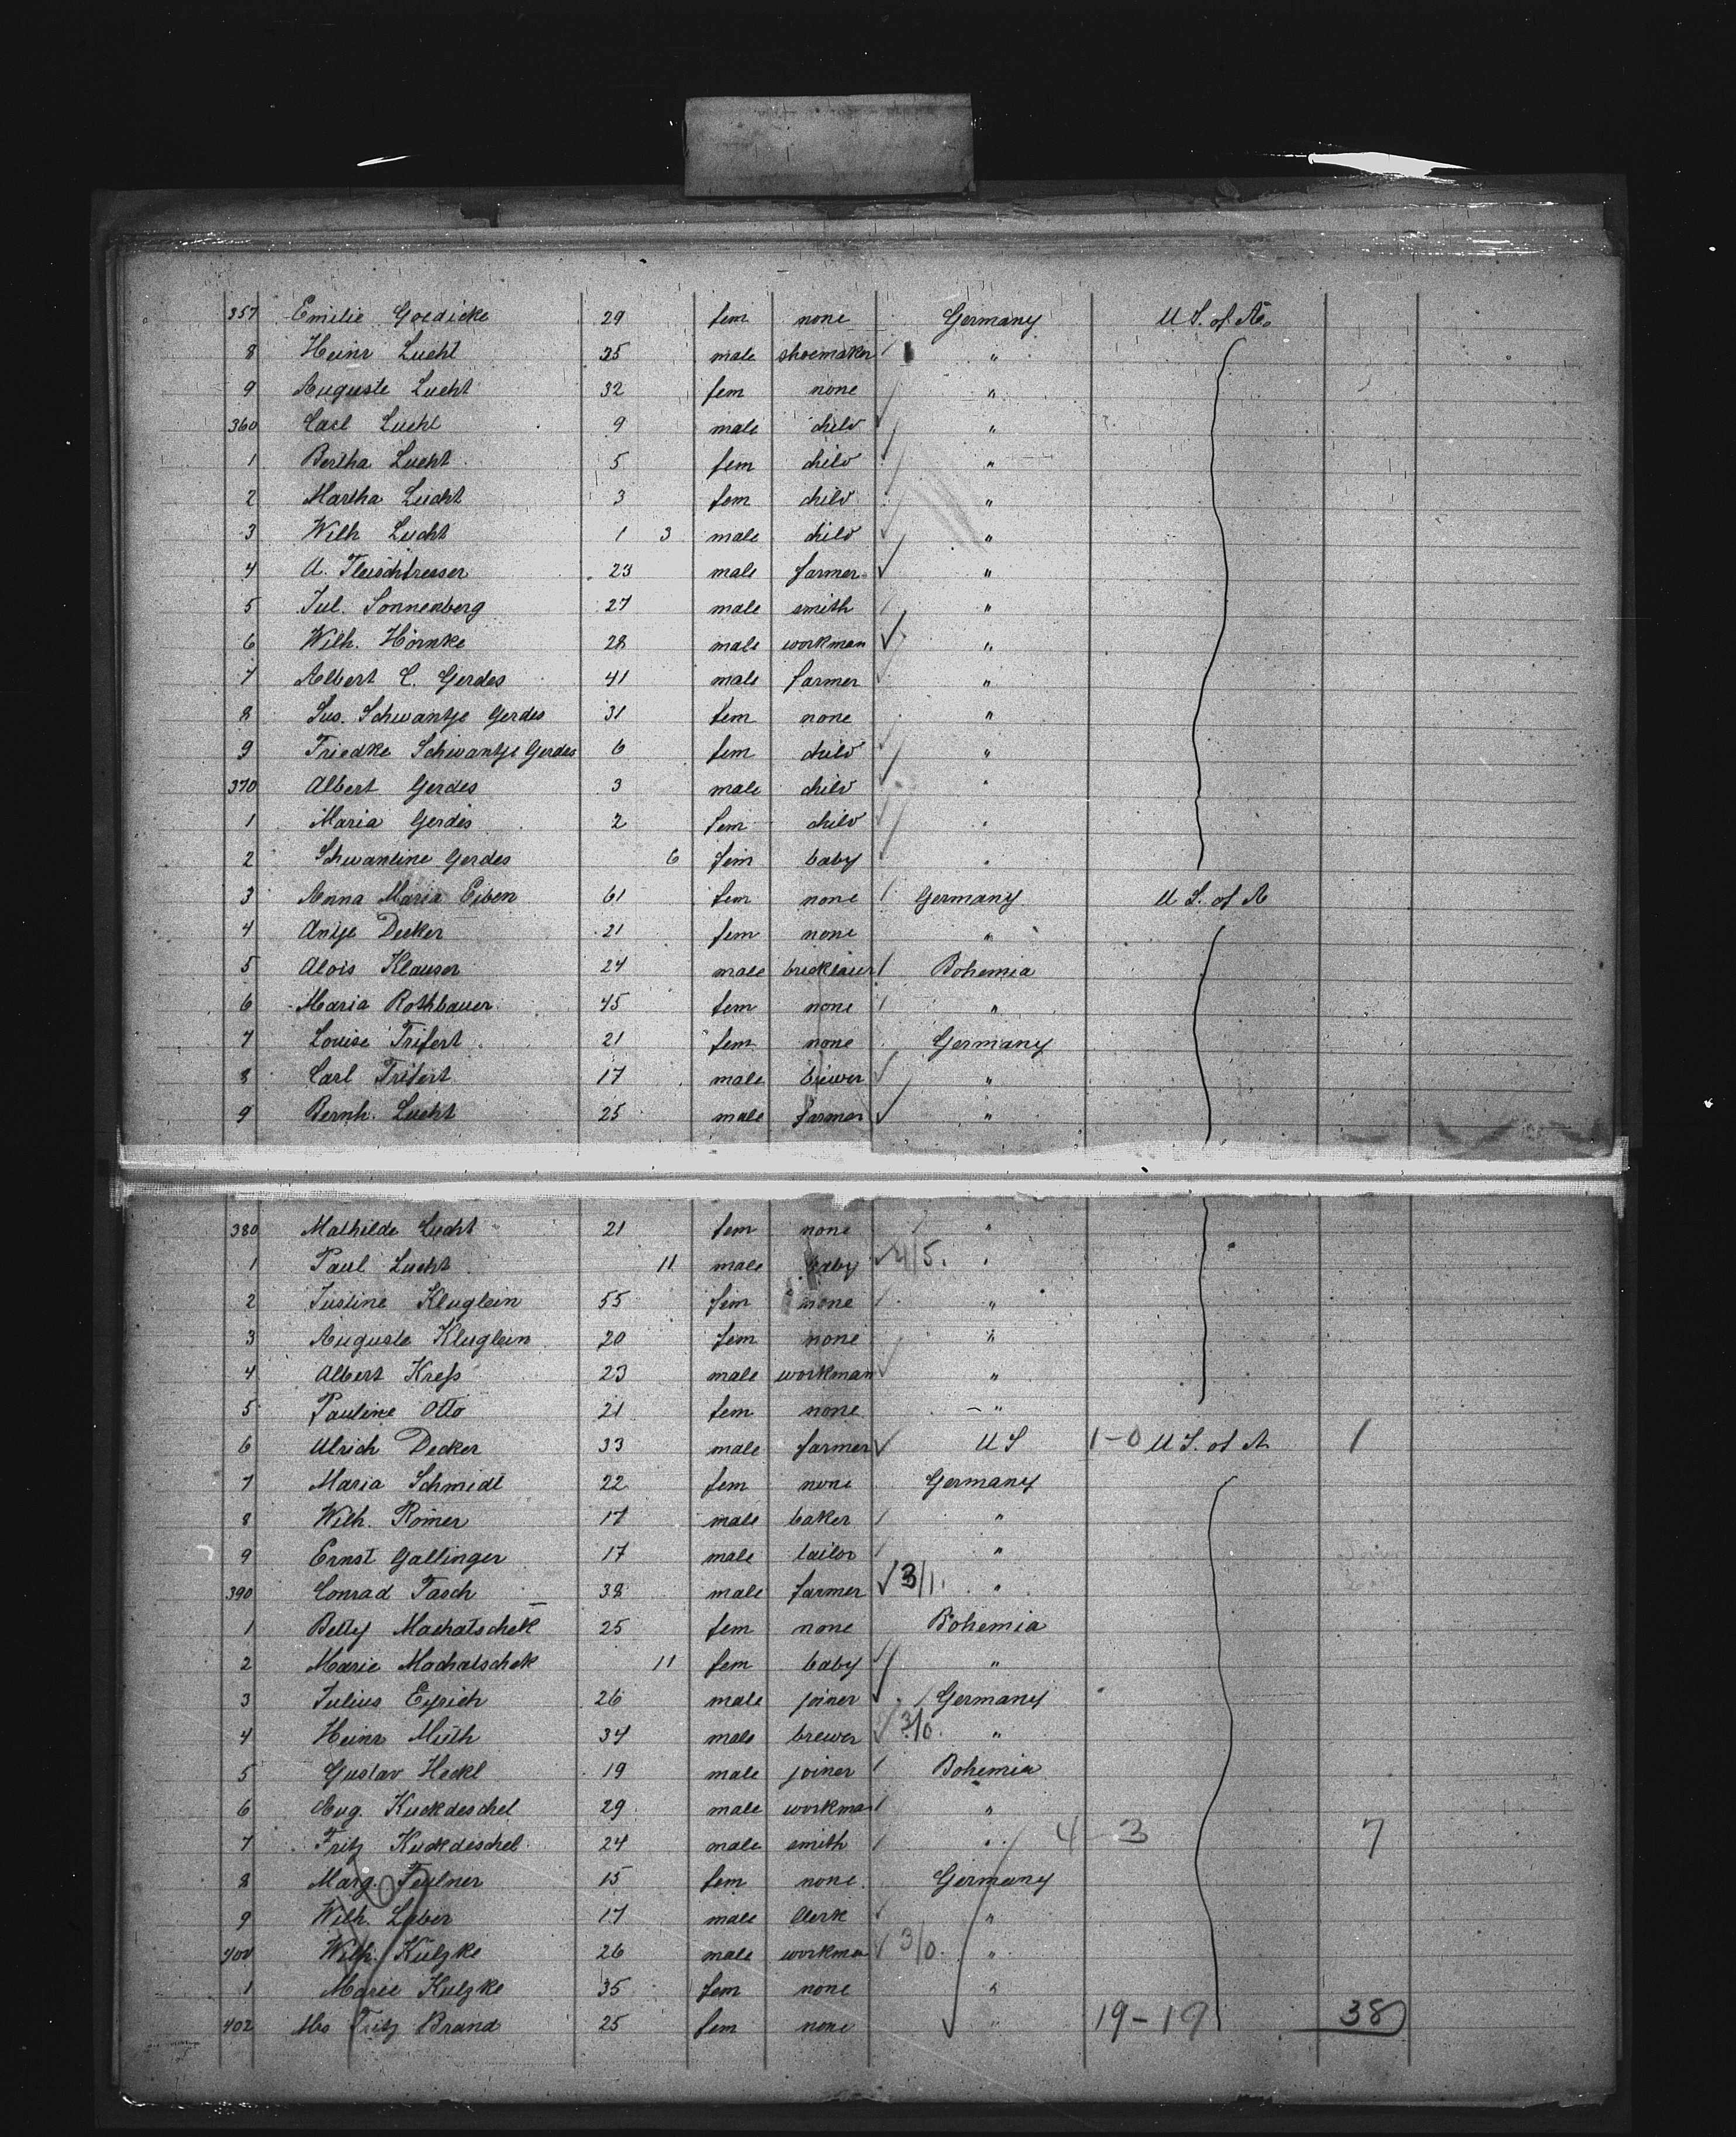 357 Emilie Goedicke 29 fem none Germany U S. of A.
8 Heinr Lucht 35 male shoemaker "
9 Auguste Lucht 32 fem none "
360 Carl Lucht 9 male child "
1 Bertha Lucht 5 fem child "
2 Martha Lucht 3 fem child "
3 Wilh Lucht 1 3 male child "
4 A. Fleischfresser 23 male farmer "
5 Jul. Sonnenberg 27 male smith "
6 Wilh. Hörnke 28 male workman "
7 Albert C. Gerdes 41 male farmer "
8 Sus. Schwantje Gerdes 31 fem none "
9 Friedke Schwantje Gerdes 6 fem child "
370 Albert Gerdes 3 male child "
1 Maria Gerdes 2 fem child "
2 Schwantine Gerdes 6 fem baby "
3 Anna Maria Eiben 61 fem none Germany U S. of A
4 Antje Decker 21 fem none "
5 Alois Klauser 24 male Bohemia
6 Maria Rothbauer 45 fem none "
7 Louise Trifert 21 fem none Germany
8 Carl Trifert 17 male brewer "
9 Bernh. Lucht 25 male farmer "
380 Mathilde Lucht 21 fem none "
1 Paul Lucht 11 male baby 4/5. "
2 Justine Kluglein 55 fem none "
3 Auguste Kluglein 20 fem none "
4 Albert Kreſs 23 male workman "
5 Pauline Otto 21 fem none "
6 Ulrich Decker 33 male farmer U S 1-0 U S. of A 1
7 Maria Schmidt 22 fem none Germany
8 Wilh. Römer 17 male baker "
9 Ernst Gallinger 17 male tailor "
390 Conrad Tasch 38 male farmer 3/1. "
1 Betty Machatschek 25 fem none Bohemia
2 Marie Machatschek 11 fem baby "
3 Julius Eyrich 26 male joiner Germany
4 Heinr Müth 34 male brewer 3/0. "
5 Gustav Heckl 19 male joiner Bohemia
6 Aug. Kuckdeschel 29 male workman "
7 Fritz Kuckdeschel 24 male smith " 4-3 7
8 Marg. Feulner 15 fem none Germany
9 Wilh. Laber 17 male Clerk "
400 Wilh. Külzke 26 male workman 3/0. "
1 Marie Külzke 35 fem none "
402 Mrs Fritz Brand 25 fem none " 19-19 38